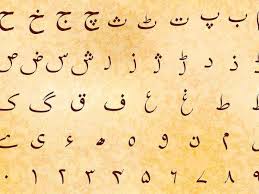 ب پ ت ٹ ث ج چ ح خ
ذ ر ڑ ز ژ س ش ص ض
ط ظ ع غ ف ق ک گ
م ن و ہ ھ ء ی ے
۰ ۱ ۲ ۳ ۴ ۵ ۶ ۷ ۸ ۹